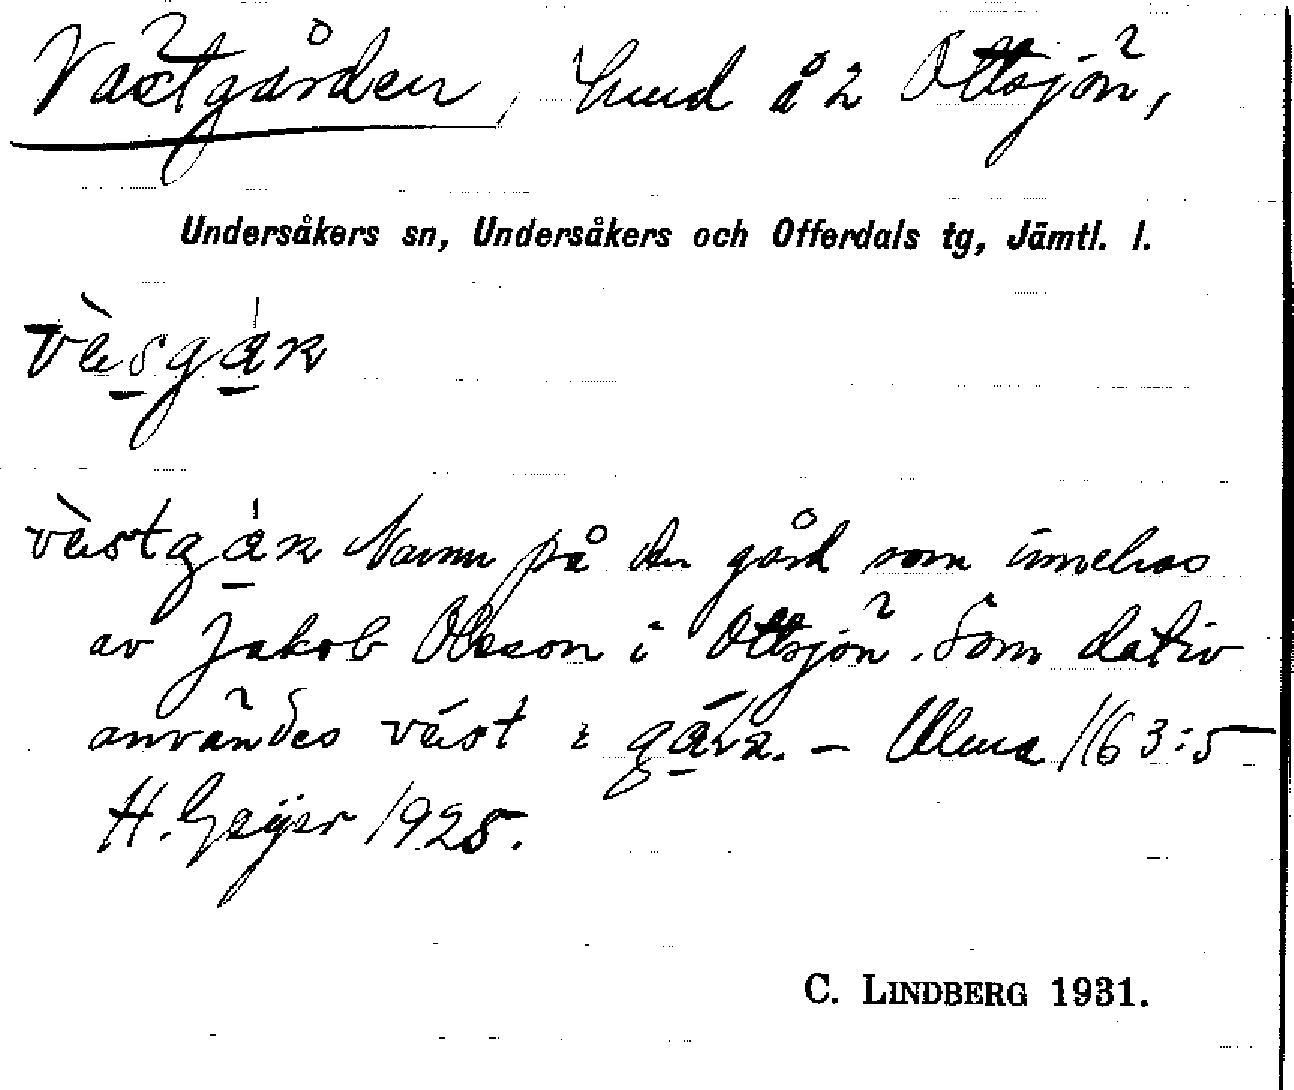 Västgården, hmd å 2 Ottsjön,
Undersåkers sn, Undersåkers och Offerdals tg, Jämtl. l.
vèsgán
vèstgán Namn på den gård som innehas
av Jakob Olsson i Ottsjön. Som dativ
användes väst i gála. – Ulma 1163:5
H. Geijer 1925.
C. LINDBERG 1931.